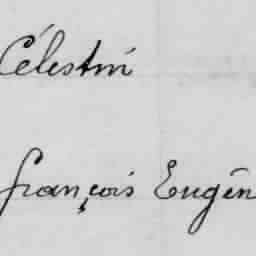 Célestin
françois Eugèn